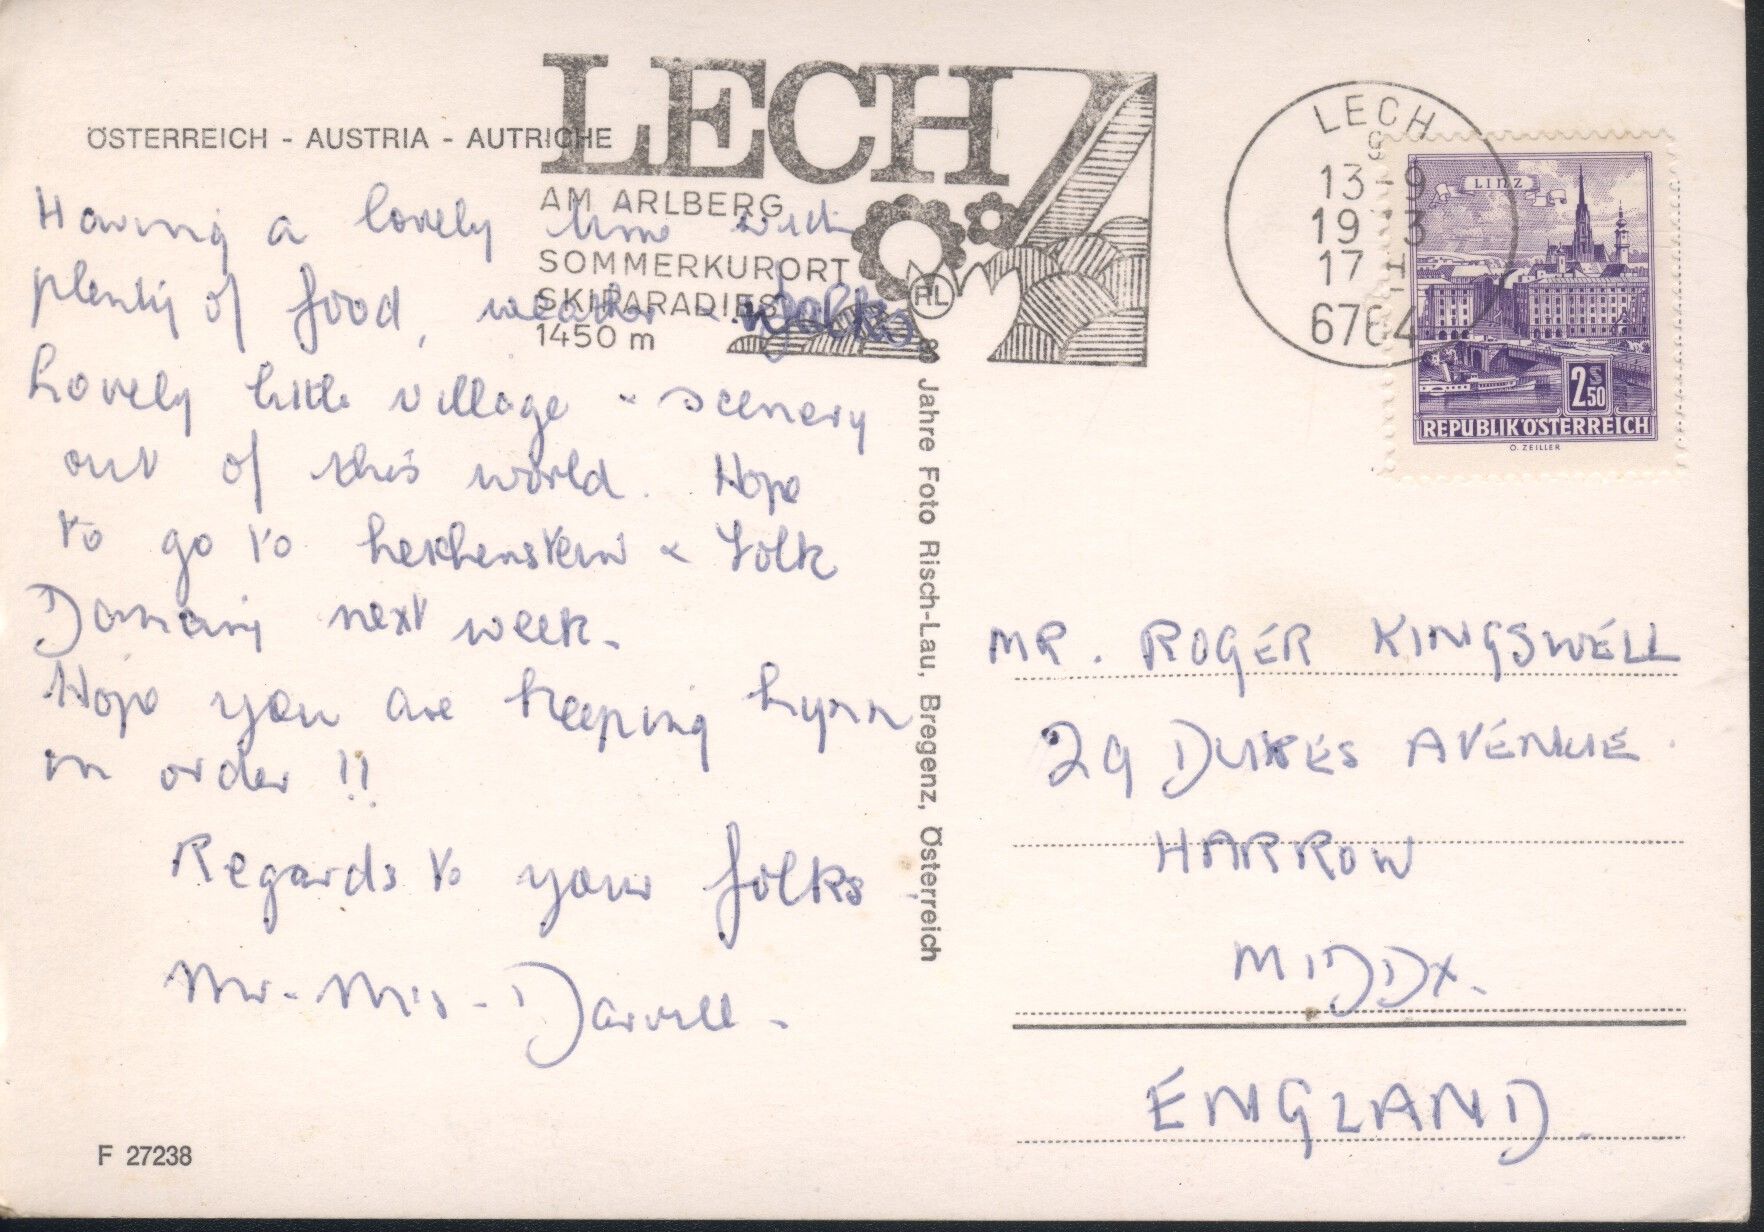 ÖSTERREICH - AUSTRIA - AUTRICHE
LECH
AM ARLBERG
SOMMERKURORT
SKIPARADIES
1450 m
RL
LECH
13 -9
19 3
17
6764
LINZ
2S50
REPUBLIK ÖSTERREICH
O. ZEILLER
Having a lovely time with
plenty of food, weather & folks
Lovely little village & scenery
out of this world. Hope
to go to Leichenstein & Folk
Dancing next week.
Hope you are keeping Lynn
in order !!
Regards to your folks
Mr - Mrs - Darvell -
F 27238
Jahre Foto Risch-Lau, Bregenz, Österreich
MR. ROGER KINGSWELL
29 DUKES AVENUE
HARROW
MIDDX.
ENGLAND.